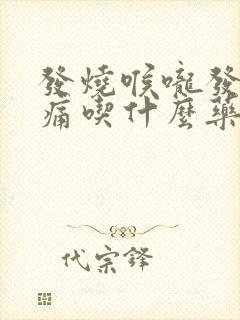 發燒喉嚨發
痛喫什麼藥
代宗鋒